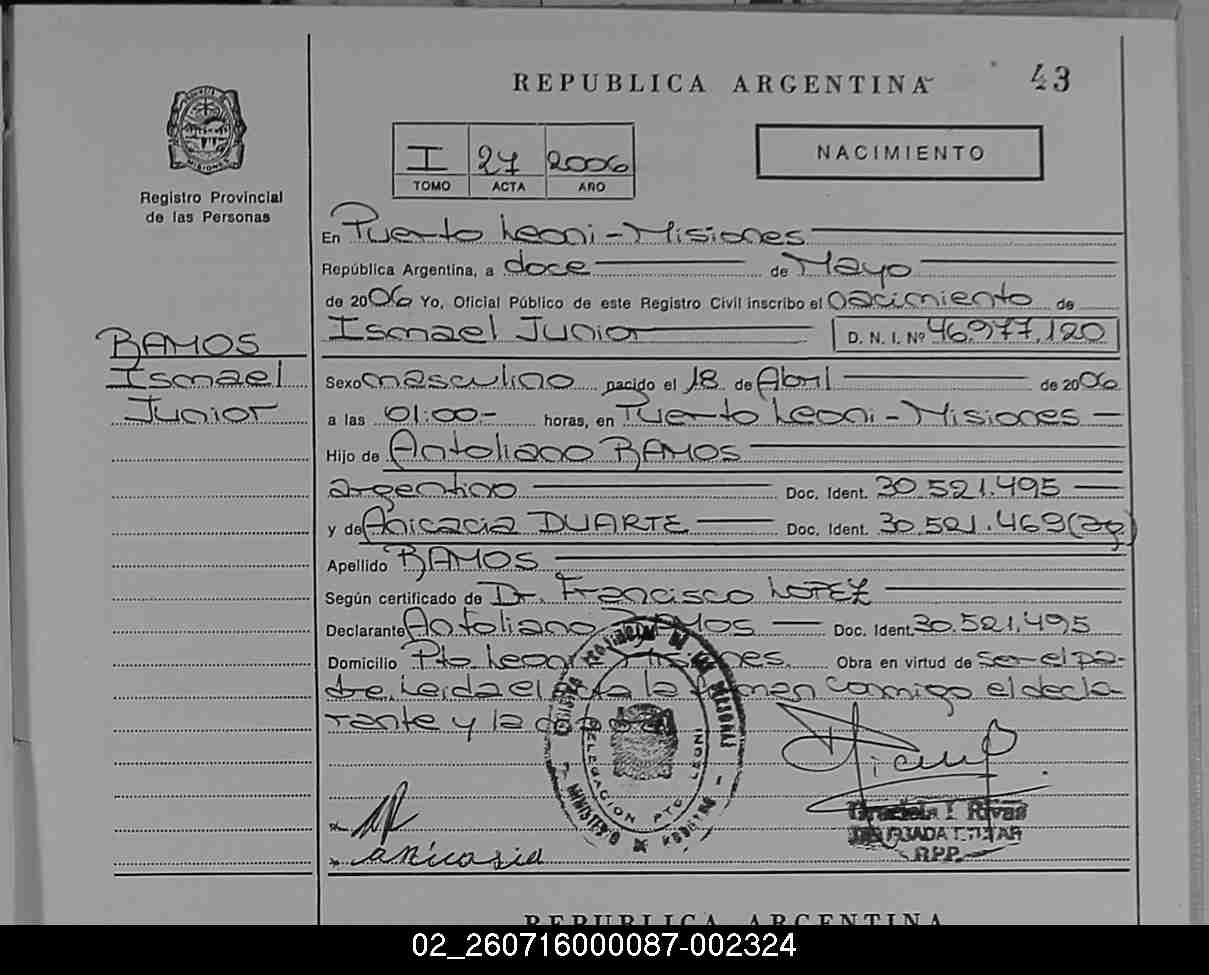 REPUBLICA ARGENTINA
43
I 27 2006
TOMO ACTA AÑO
NACIMIENTO
Registro Provincial
de las Personas
En Puerto Leoni - Misiones
República Argentina, a doce de Mayo
de 2006 Yo, Oficial Público de este Registro Civil inscribo el nacimiento de
Ismael Junior D. N. I. Nº 46.977.120
RAMOS
Ismael
Junior
Sexo masculino nacido el 18 de Abril de 2006
a las 01:00.- horas, en Puerto Leoni - Misiones
Hijo de Antoliano RAMOS
argentino Doc. Ident. 30.521.495
y de Anicacia DUARTE Doc. Ident. 30.521.469 (ag)
Apellido RAMOS
Según certificado de Dr. Francisco LOPEZ
Declarante Antoliano RAMOS Doc. Ident. 30.521.495
Domicilio Pto. Leoni Misiones. Obra en virtud de ser el pa-
dre. Leida el acta la firman conmigo el decla-
rante y la
DELEGACION PTO. LEONI
MINISTERIO DE
Graciela I. Rivas
DELEGADA TITULAR
RPP
anicasia
REPUBLICA ARGENTINA
02_260716000087-002324